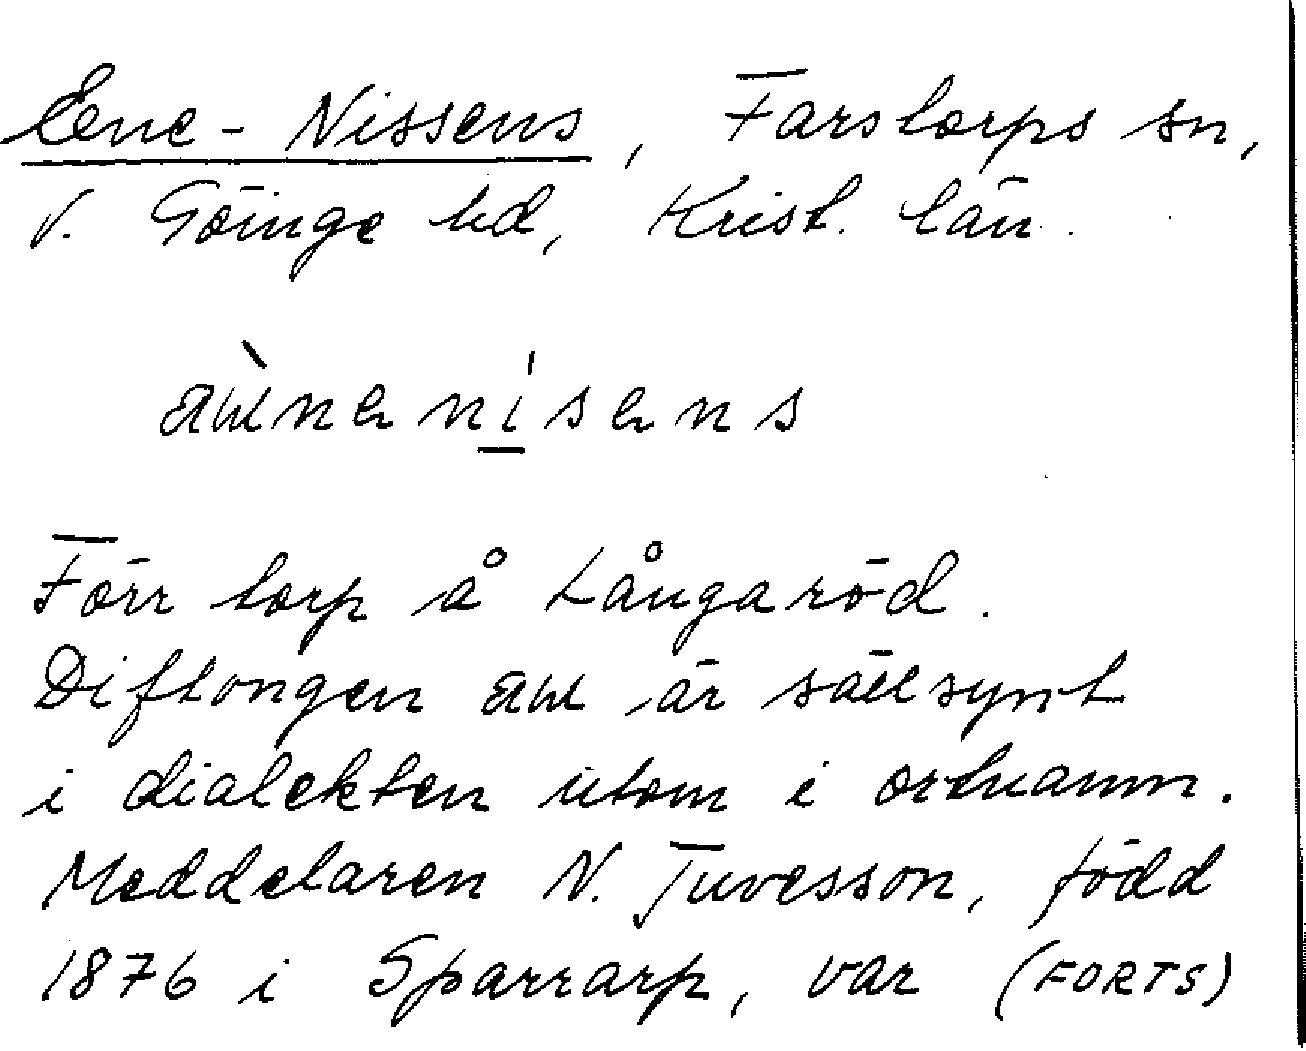 Ene-Nissens, Farstorps sn,
V. Göinge hd, Krist. län.
Förr torp å Långaröd.
Diftongen är sällsynt
i dialekten utom i ortnamn.
Meddelaren N. Tuvesson, född
1876 i Sparrarp, var (FORTS)